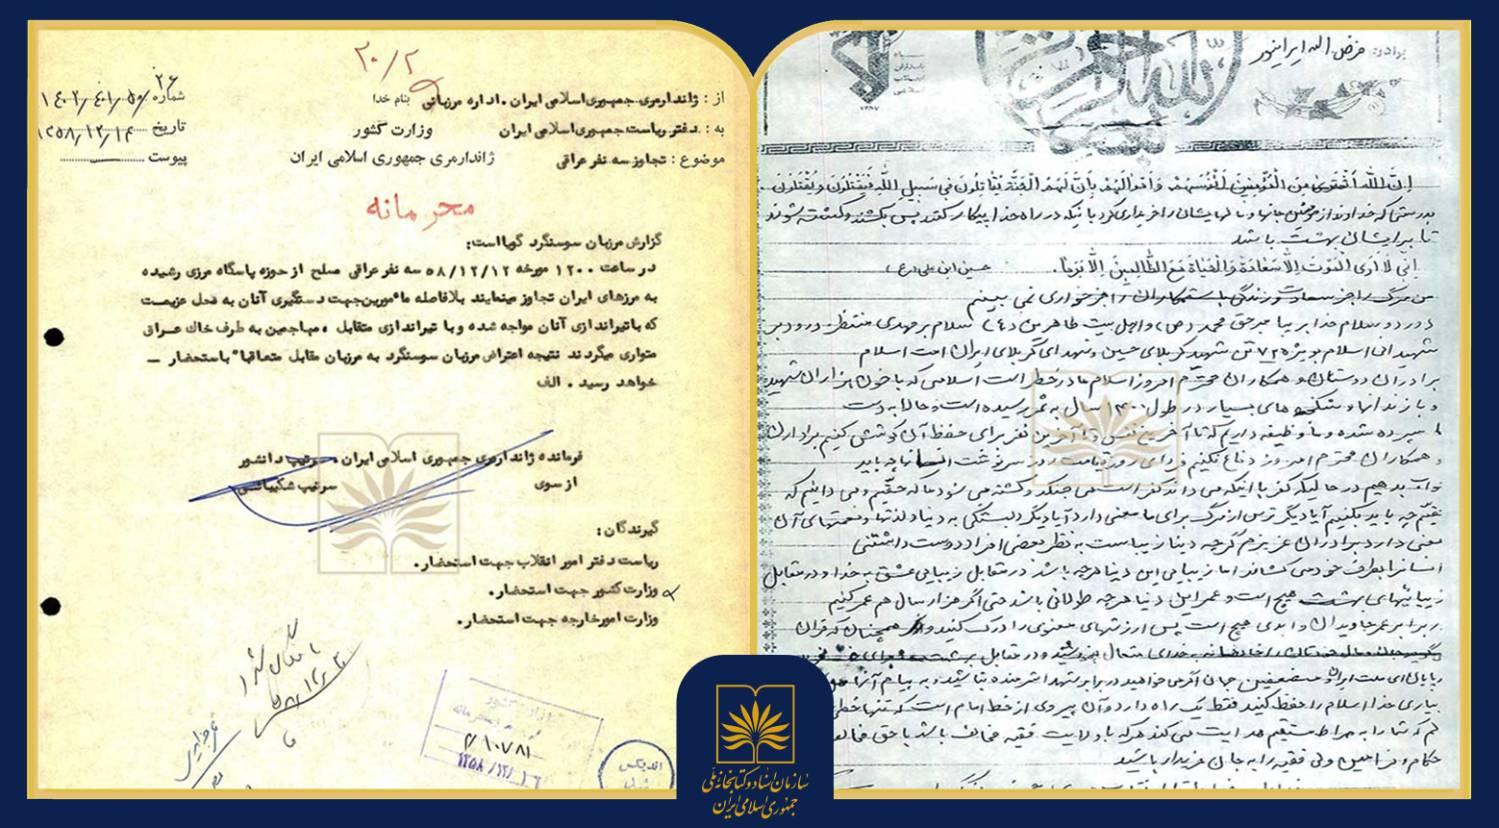 ۲۰/۲
از : ژاندارمری جمهوری اسلامی ایران . اداره مرزبانی
بنام خدا
شماره
به : دفتر ریاست جمهوری اسلامی ایران
وزارت کشور
تاریخ ۱۲۵۸/۱۲/۱۴
موضوع : تجاوز سه نفر عراقی
ژاندارمری جمهوری اسلامی ایران
پیوست
محرمانه
گزارش مرزبان سوسنگرد گویااست:
در ساعت ۱۲۰۰ مورخه ۵۸/۱۲/۱۲ سه نفر عراقی صلح از حوزه پاسگاه مرزی رشیده
به مرزهای ایران تجاوز مینمایند بلافاصله مأمورین جهت دستگیری آنان به محل عزیمت
که باتیراندازی آنان مواجه شده و با تیراندازی متقابل ، مهاجمین به طرف خاک عراق
متواری میگردند نتیجه اعتراض مرزبان سوسنگرد به مرزبان مقابل متعاقبا" باستحضار —
خواهد رسید . الف
فرمانده ژاندارمری جمهوری اسلامی ایران . سرتیپ دانشور
از سوی سرتیپ شکیبائی
گیرندگان :
ریاست دفتر امور انقلاب جهت استحضار .
وزارت کشور جهت استحضار .
وزارت امورخارجه جهت استحضار .
وزارت کشور
۱۰۷۸۱
اندیکس شد
برادر: فرض اله ایرانپور
اِنَّ اللهَ اشْتَری مِنَ الْمُؤمِنینَ اَنْفُسَهُمْ وَ اَمْوالَهُمْ بِاَنَّ لَهُمُ الْجَنَّةَ یُقاتِلُونَ فی سَبیلِ اللهِ فَیَقْتُلُونَ وَ یُقْتَلُونَ
بدرستی که خداوند از مومنین جانها و مالهایشان را خریداری کرد باینکه در راه خدا پیکار کنند پس بکشند و کشته شوند
تا برایشان بهشت باشد
اِنّی لا اَرَی الْمَوْتَ اِلاّ سَعادَة وَ الْحَیاةَ مَعَ الظّالِمینَ اِلاّ بَرَماً. حسین ابن علی (ع)
من مرگ را جز سعادت و زندگی با ستمکاران را جز خواری نمی بینم
درود و سلام خدا بر پیامبر حق محمد (ص) و اهل بیت طاهرین (ع) سلام بر مهدی منتظر درود بر
شهیدان اسلام بویژه ۷۲ تن شهید کربلای حسین و شهدای کربلای ایران امت اسلام
برادران دوستان و همکاران محترم امروز اسلام ما در خطر است اسلامی که با خون هزاران شهید
و با زندانها و شکنجه های بسیار در طول ۱۴۰۰ سال به ثمر رسیده است و حالا به دست
ما سپرده شده و ما وظیفه داریم که تا آخرین نفس و تا آخرین نفر برای حفظ آن کوشش کنیم برادران
و همکاران محترم امروز دفاع نکنیم فردای روز قیامت در سرنوشت انسانها چه باید
جواب بدهیم در حالیکه کفر با اینکه می داند کفر است می جنگد و کشته می شود ما که حقیم و می دانیم که
حقیم چه باید بکنیم آیا دیگر ترس از مرگ برای ما معنی دارد آیا دیگر دلبستگی به دنیا و لذتها و نعمتهای آن
معنی دارد برادران عزیزم گرچه دنیا زیباست به نظر بعضی افراد و دوست داشتنی
انسان را بطرف خود می کشاند اما زیبایی این دنیا هرچه باشد در مقابل زیبایی عشق به خدا و در مقابل
زیبائیهای بهشت هیچ است و عمر این دنیا هرچه طولانی باشد حتی اگر هزار سال هم عمر کنیم
در برابر عمر جاویدان و ابدی هیچ است پس ارزشهای معنوی را درک کنند و همچنان که قران
به خدای متعال بفروشید و در مقابل بهشت
در پایان ای ملت ایران و مستضعفین جهان اگر می خواهید در برابر شهدا شرمنده نباشید و به پیام آنها
بیاری خدا اسلام را حفظ کنید فقط یک راه دارد و آن پیروی از خط امام است که تنها خطی
که شما را به صراط مستقیم هدایت می کند هرکه با ولایت فقیه مخالف باشد با حق مخالف
احکام و فرامین ولی فقیه را به جان خریدار باشید
سازمان اسناد و کتابخانه ملی
جمهوری اسلامی ایران